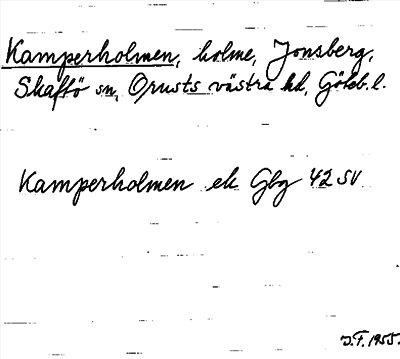 Kamperholmen, holme, Jonsberg,
Skaftö sn, Orusts västra hd, Göteb. l.
Kamperholmen ek Gbg 42 SV
J.F. 1955.